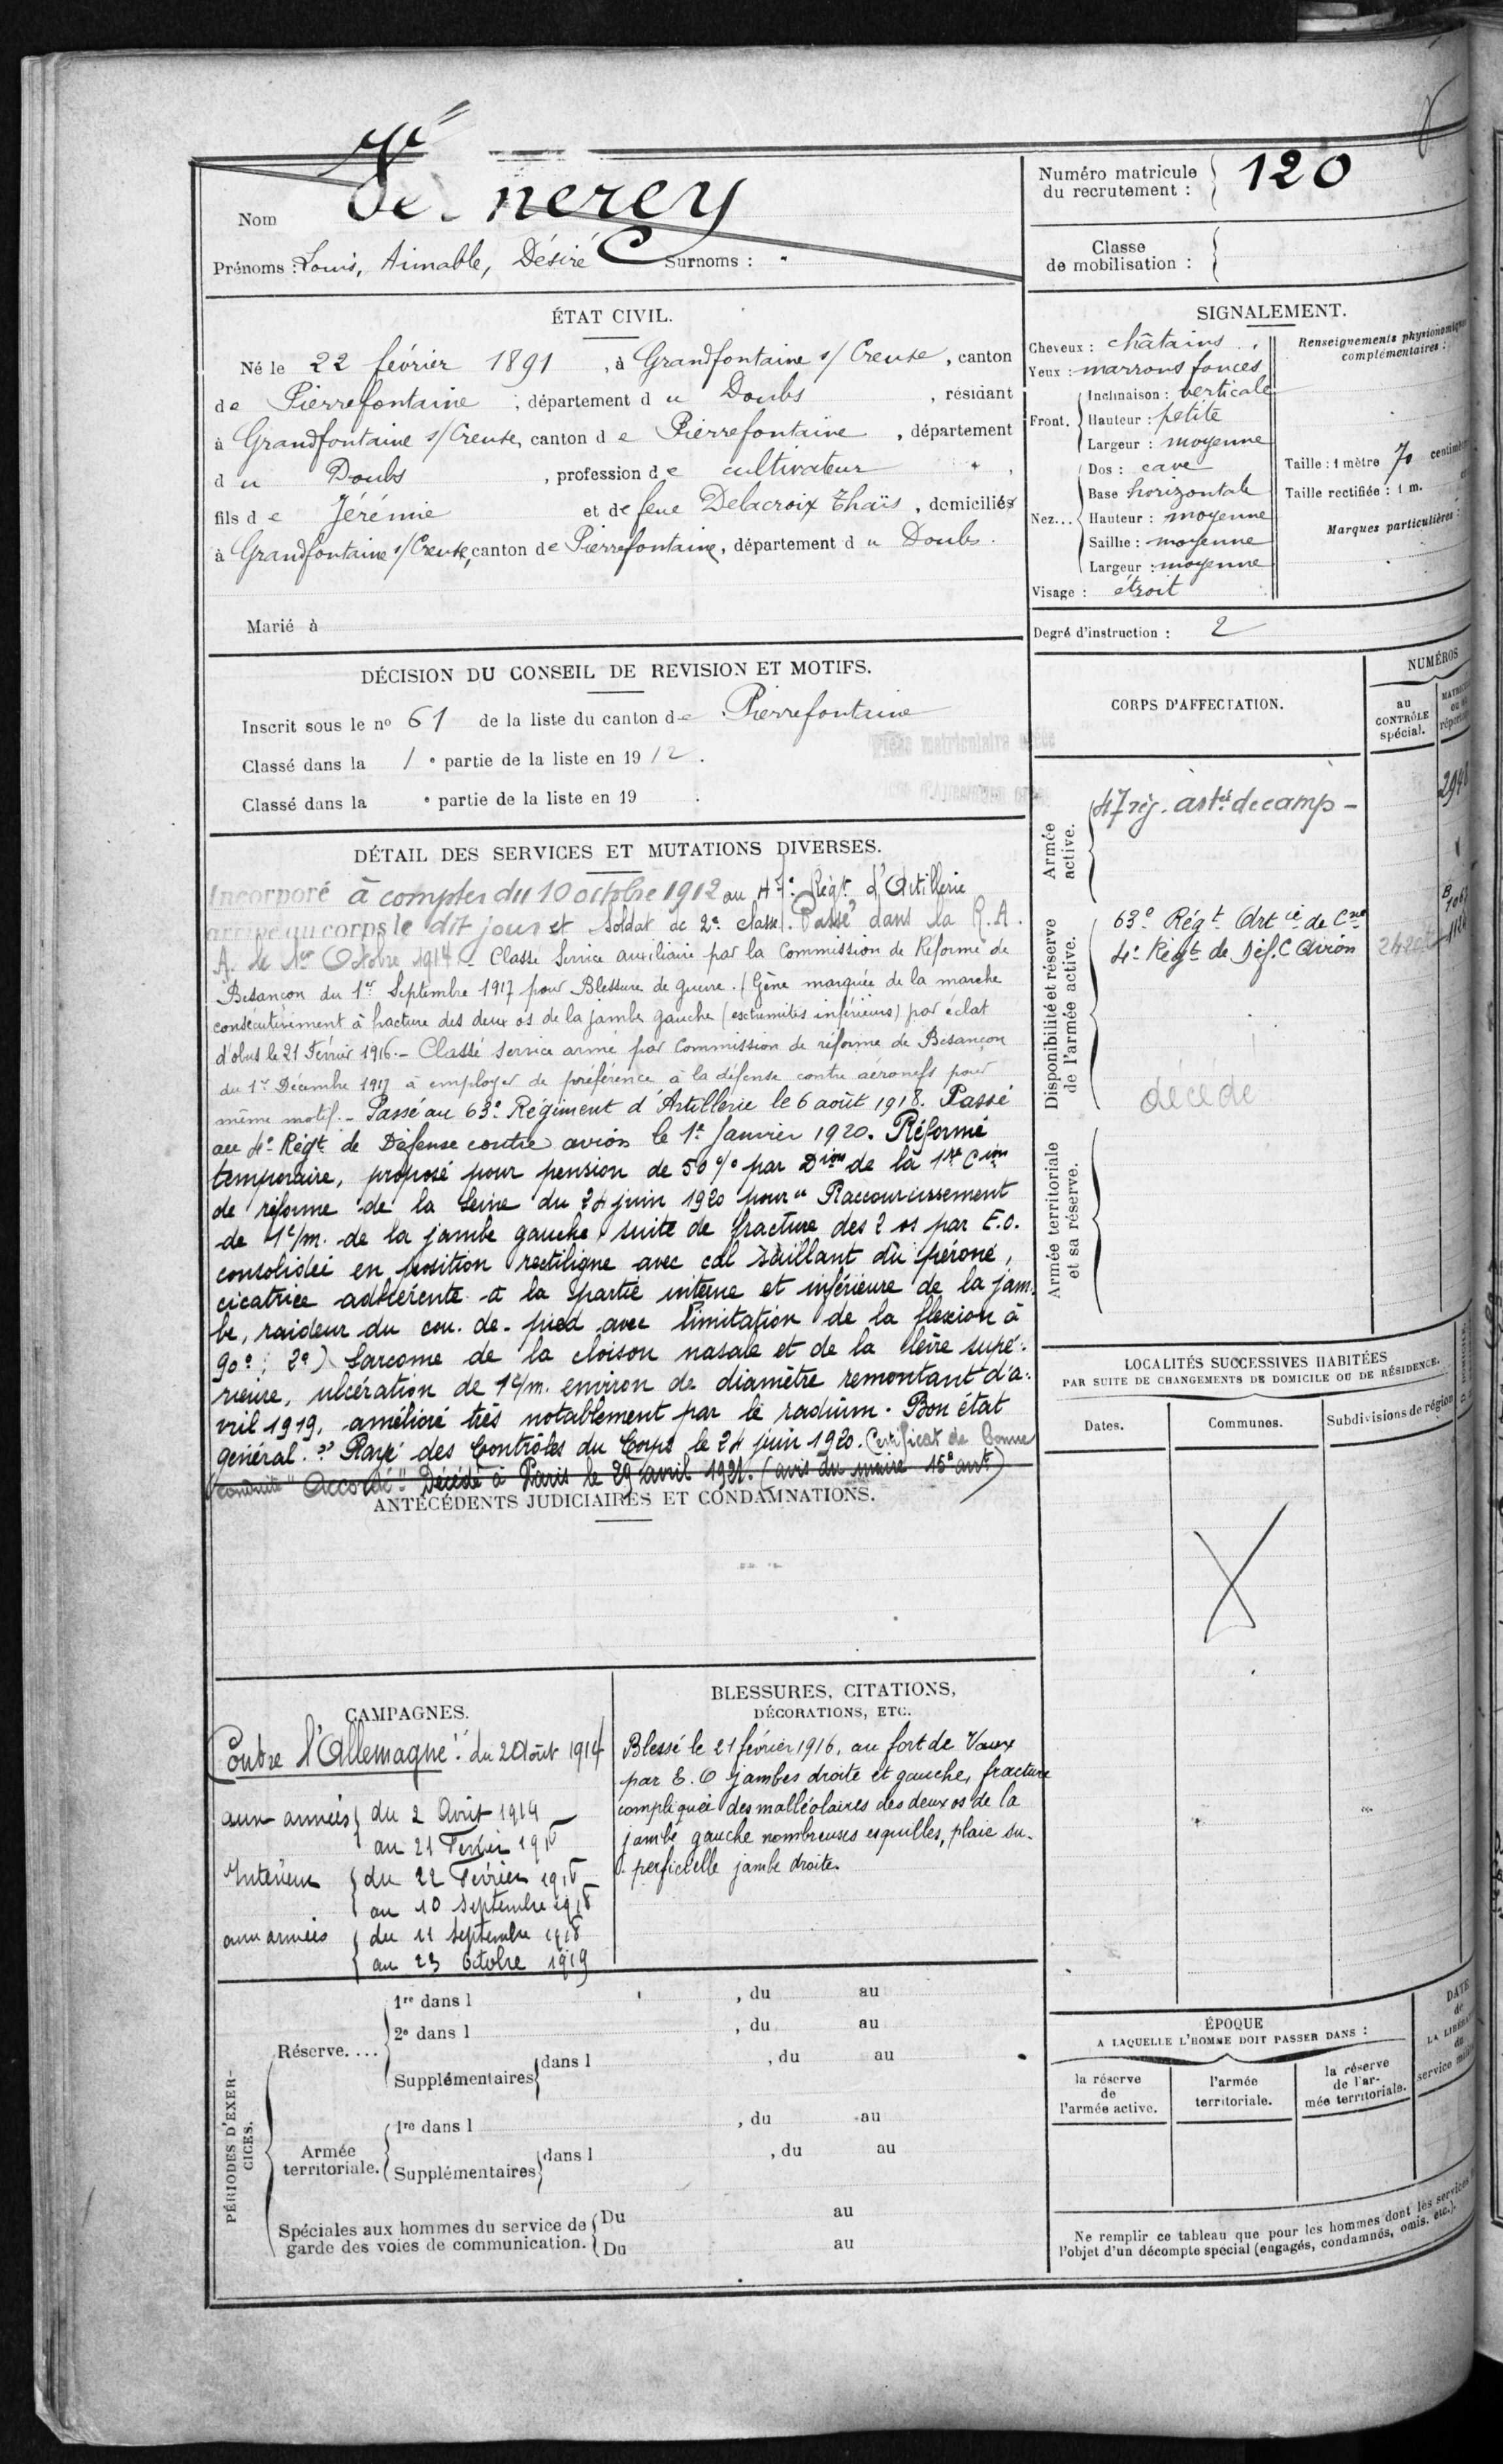 Nom Vernerey
Prénoms : Louis, Aimable, Désiré Surnoms :
Numéro matricule du recrutement : 120
Classe de mobilisation :
ÉTAT CIVIL.
Né le 22 février 1891, à Grandfontaine s/ Creuse, canton
de Pierrefontaine, département du Doubs, résidant
à Grandfontaine s/ Creuse, canton de Pierrefontaine, département
du Doubs, profession de cultivateur,
fils de Jérémie et de feue Delacroix Thaïs, domiciliés
à Grandfontaine s/ Creuse, canton de Pierrefontaine, département du Doubs.
Marié à
SIGNALEMENT.
Cheveux : châtains.
Yeux : marrons foncés
Front. Inclinaison : verticale
Hauteur : petite
Largeur : moyenne
Nez... Dos : cave
Base horizontale
Hauteur : moyenne
Saillie : moyenne
Largeur : moyenne
Visage : étroit
Renseignements physionomiques
complémentaires :
Taille : 1 mètre 70 centim
Taille rectifiée : 1 m.
Marques particulières :
Degré d'instruction : 2
DÉCISION DU CONSEIL DE REVISION ET MOTIFS.
Inscrit sous le no 61 de la liste du canton de Pierrefontaine
Classé dans la 1e partie de la liste en 1912.
Classé dans la e partie de la liste en 19 .
DÉTAIL DES SERVICES ET MUTATIONS DIVERSES.
Incorporé à compter du 10 octobre 1912 au 47e Régt d'Artillerie
arrivé au corps le dit jour et Soldat de 2e classe. Passé dans la R.A.
A. le 1er Octobre 1914. - Classé Service auxiliaire par la Commission de Réforme de
Besançon du 1er Septembre 1917 pour Blessure de guerre. (Gêne marquée de la marche
consécutivement à fracture des deux os de la jambe gauche (extrémités inférieures) par éclat
d'obus le 21 Février 1916. - Classé service armé par Commission de réforme de Besançon
du 1er Décembre 1917 à employer de préférence à la défense contre aéronefs pour
même motif. - Passé au 63e Régiment d'Artillerie le 6 août 1918. Passé
au 4e Régt de Défense contre avions le 1er Janvier 1920. Réformé
temporaire, proposé pour pension de 50 % par Dion de la 1re Cion
de réforme de la Seine du 24 juin 1920 pour " Raccourcissement
de 1c/m. de la jambe gauche suite de fracture des 2 os par E.O.
consolidée en position rectiligne avec cal saillant du péroné,
cicatrice adhérente à la partie interne et inférieure de la jam-
be, raideur du cou-de-pied avec limitation de la flexion à
90°; 2°) Sarcome de la cloison nasale et de la lèvre supé-
rieure, ulcération de 1c/m. environ de diamètre remontant d'a-
vril 1919, amélioré très notablement par le radium. Bon état
général. " Rayé des Contrôles du Corps le 24 juin 1920. Certificat de Bonne
conduite "Accordé". Décédé à Paris le 29 avril 1921. (avis du maire 15e arrt)
ANTÉCÉDENTS JUDICIAIRES ET CONDAMNATIONS.
CORPS D'AFFECTATION.
NUMÉROS
au CONTRÔLE spécial.
Armée active.
47 rég. artie de camp -
Disponibilité et réserve de l'armée active.
63e Régt Artie de Cne
4e Régt de Déf. C Avion
décédé
Armée territoriale et sa réserve.
LOCALITÉS SUCCESSIVES HABITÉES
PAR SUITE DE CHANGEMENTS DE DOMICILE OU DE RÉSIDENCE.
Dates. Communes. Subdivisions de région
CAMPAGNES.
Contre l'Allemagne : du 2 Août 1914
aux armées du 2 Août 1914
au 21 Février 1916
Intérieur du 22 Février 1916
au 10 septembre 1918
aux armées du 11 septembre 1918
au 23 Octobre 1919
BLESSURES, CITATIONS,
DÉCORATIONS, ETC.
Blessé le 21 février 1916, au fort de Vaux
par E.O jambes droite et gauche, fracture
compliquée des malléolaires des deux os de la
jambe gauche nombreuses esquilles, plaie su-
perficielle jambe droite.
PÉRIODES D'EXER-
CICES.
Réserve....
1re dans l , du au
2e dans l , du au
Supplémentaires dans l , du au
Armée territoriale.
1re dans l , du au
Supplémentaires dans l , du au
Spéciales aux hommes du service de
garde des voies de communication.
Du au
Du au
ÉPOQUE
A LAQUELLE L'HOMME DOIT PASSER DANS :
la réserve de l'armée active.
l'armée territoriale.
la réserve de l'ar-
mée territoriale.
DATE
de
Ne remplir ce tableau que pour les hommes dont les services
l'objet d'un décompte spécial (engagés, condamnés, omis, etc.).